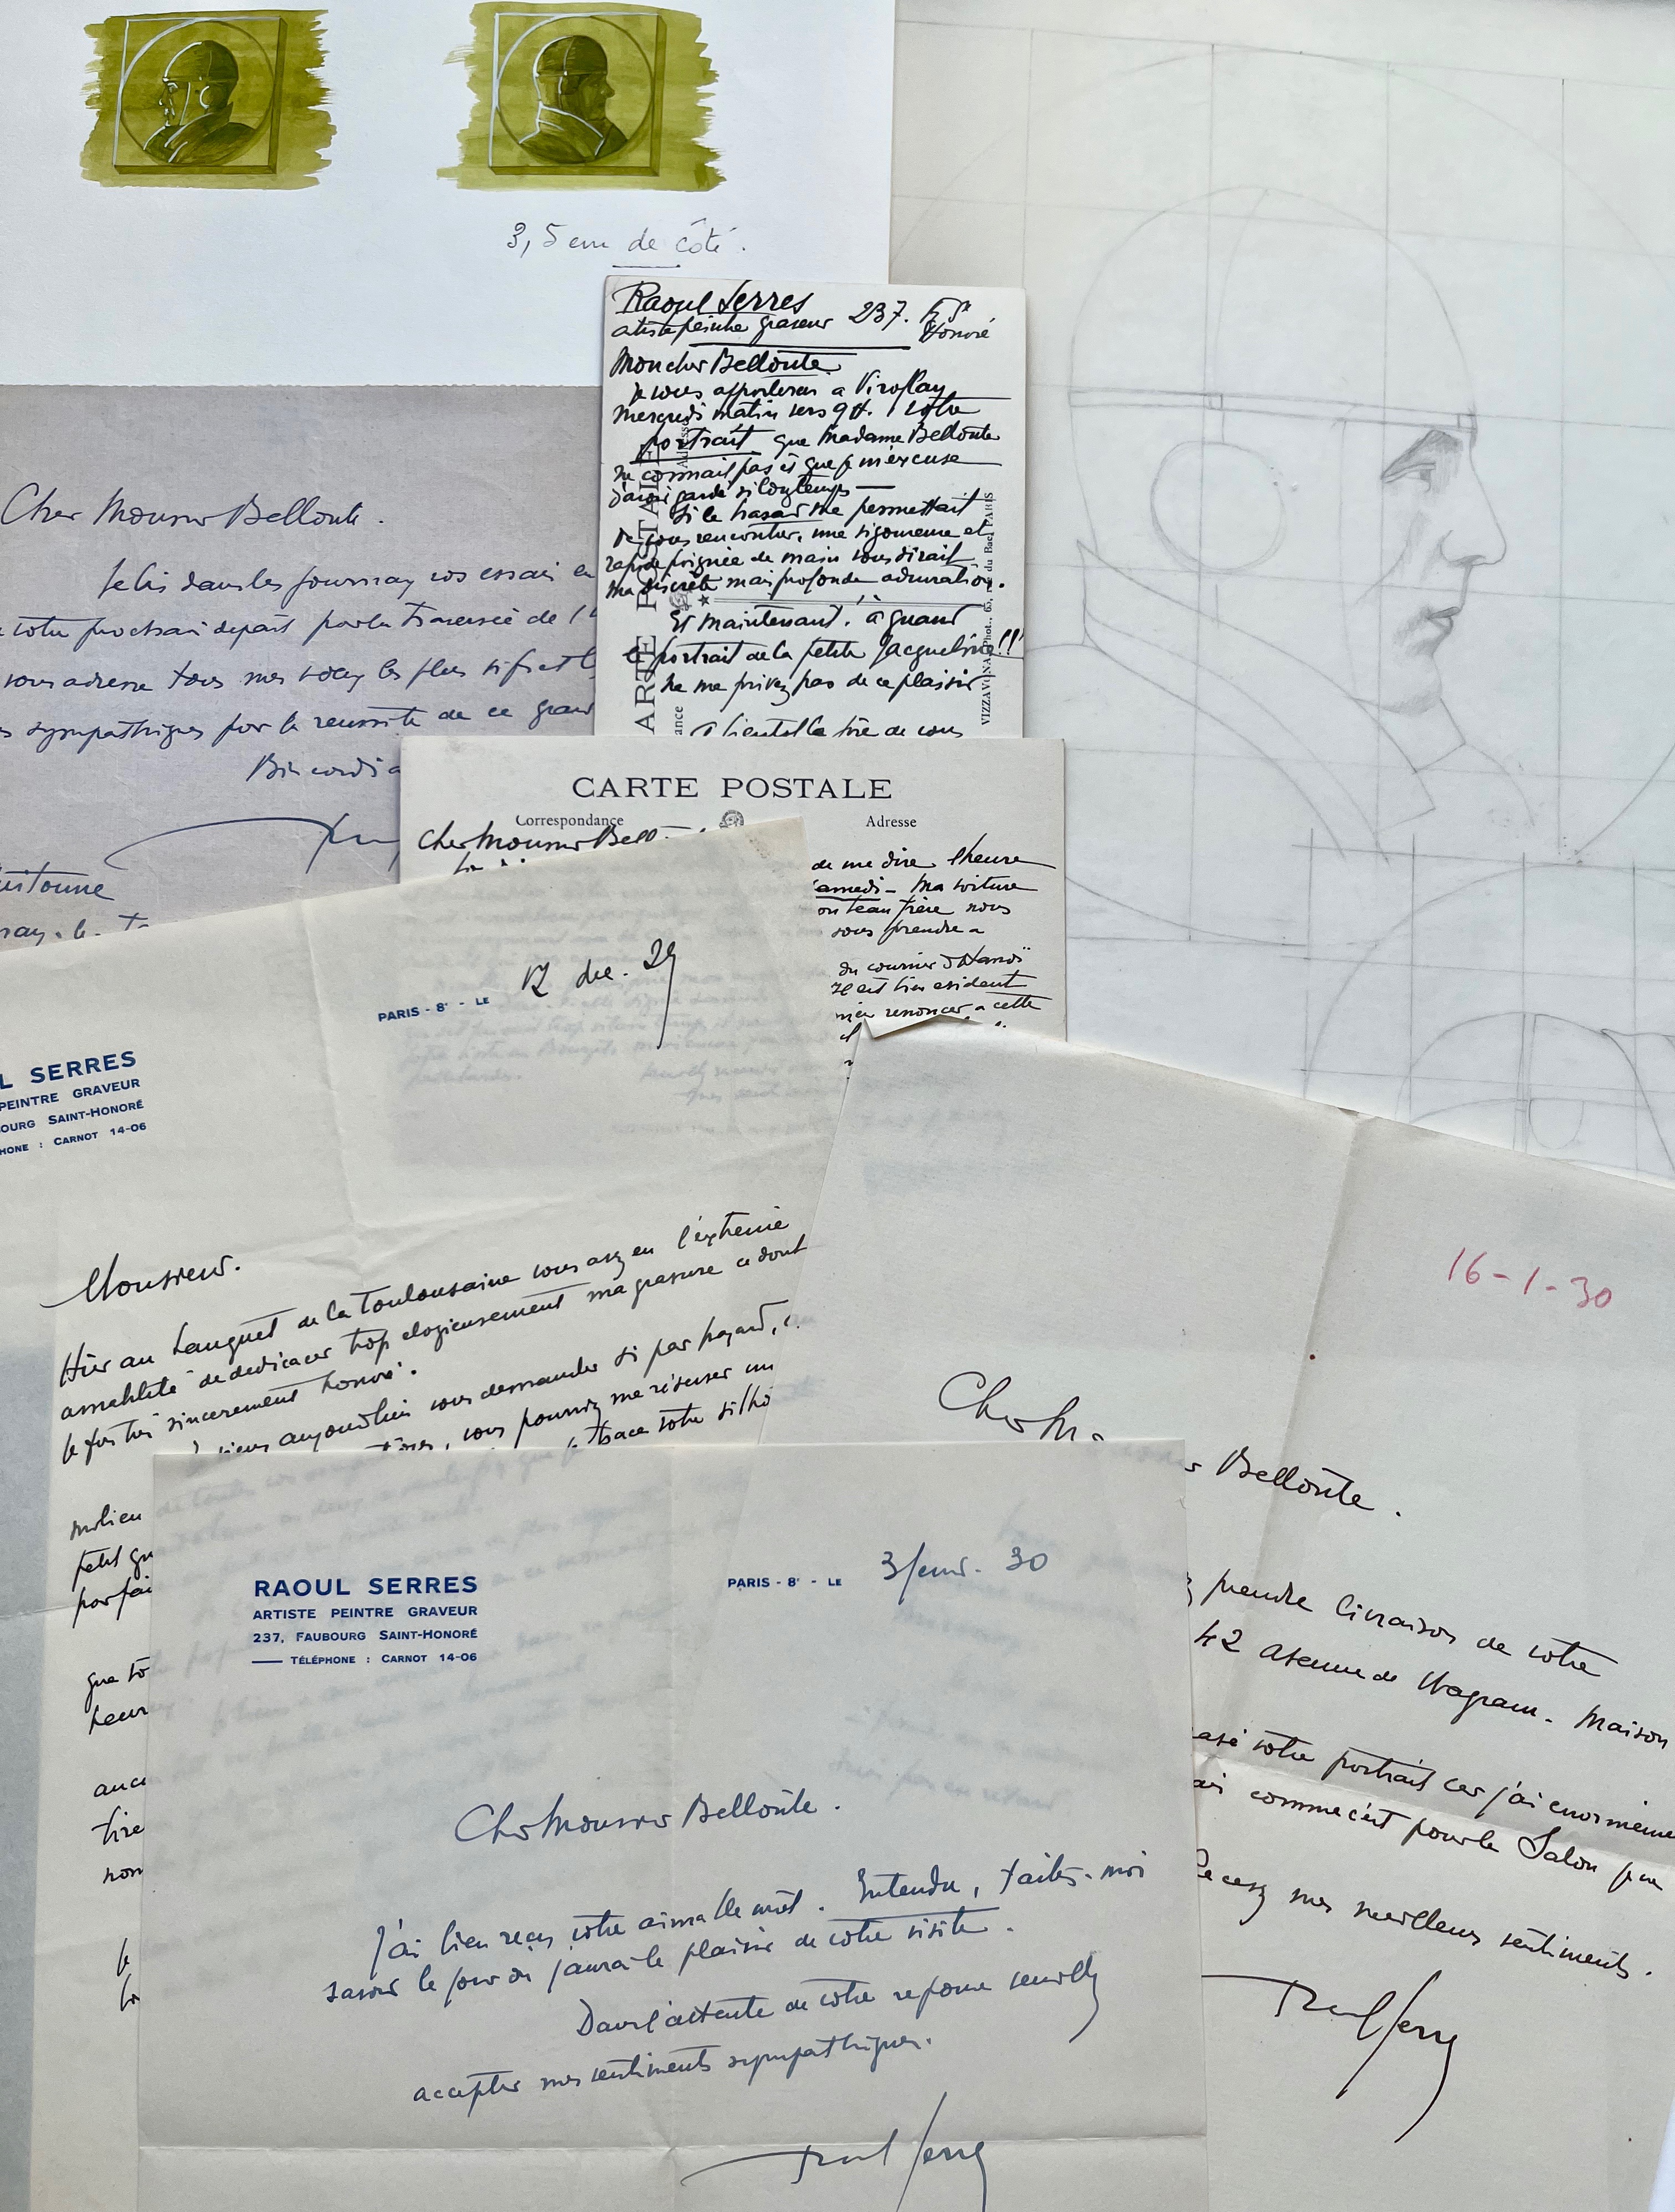 3,5 cm de côté.
Raoul Serres
artiste peintre graveur 237. Fg St
Honoré
Mon cher Bellonte
Je vous apporterai a Viroflay
mercredi matin vers 9H. votre
portrait que Madame Bellonte
ne connait pas et que je m'excuse
d'avoir gardé si longtemps —
Si le hasard me permettait
de vous rencontrer, une vigoureuse et
rapide poignée de main vous dirait
ma discrète mais profonde admiration.
Et maintenant, à quand
le portrait de la petite Jacqueline!!
ne me privez pas de ce plaisir
A bientôt la joie de vous
VIZZAVONA, Phot., 65, rue du Bac, PARIS
Cher Monsieur Bellonte.
Je lis dans les journaux vos essais en
votre prochain départ pour la traversée de l'
vous adresse tous mes voeux les plus vifs et l
s sympathiques pour la reussite de ce gran
Bien cordia
CARTE POSTALE
Correspondance
Adresse
Cher Monsieur Bello
de me dire l'heure
samedi - Ma voiture
on beau frère nous
vous prendre a
du courrier d'Hanoï
Il est bien evident
renoncer a cette
PARIS - 8e - LE 12 dec. 29
L SERRES
PEINTRE GRAVEUR
OURG SAINT-HONORÉ
HONE : CARNOT 14-06
Monsieur.
Hier au banquet de la Toulousaine vous avez eu l'extreme
amabilité de dedicacer trop elogieusement ma gravure ce dont
je fus très sincerement honoré.
viens aujourd'hui vous demander si par hazard,
vous pourriez me réserver un
trace votre silho
milieu
petit gr
parfai
que vo
heur
auc
tire
nom
16-1-30
Cher M
Bellonte.
prendre livraison de votre
42 avenue de Wagram. Maison
votre portrait car j'ai enormeme
comme c'est pour le Salon
Recevez mes meilleurs sentiments.
Raoul Serres
RAOUL SERRES
ARTISTE PEINTRE GRAVEUR
237, FAUBOURG SAINT-HONORÉ
TÉLÉPHONE : CARNOT 14-06
PARIS - 8e - LE 3 fevr. 30
Cher Monsieur Bellonte.
J'ai bien reçu votre aimable mot. Entendu, faites-moi
savoir le jour où j'aurai le plaisir de votre visite.
Dans l'attente de votre reponse veuillez
accepter mes sentiments sympathiques.
Raoul Serres